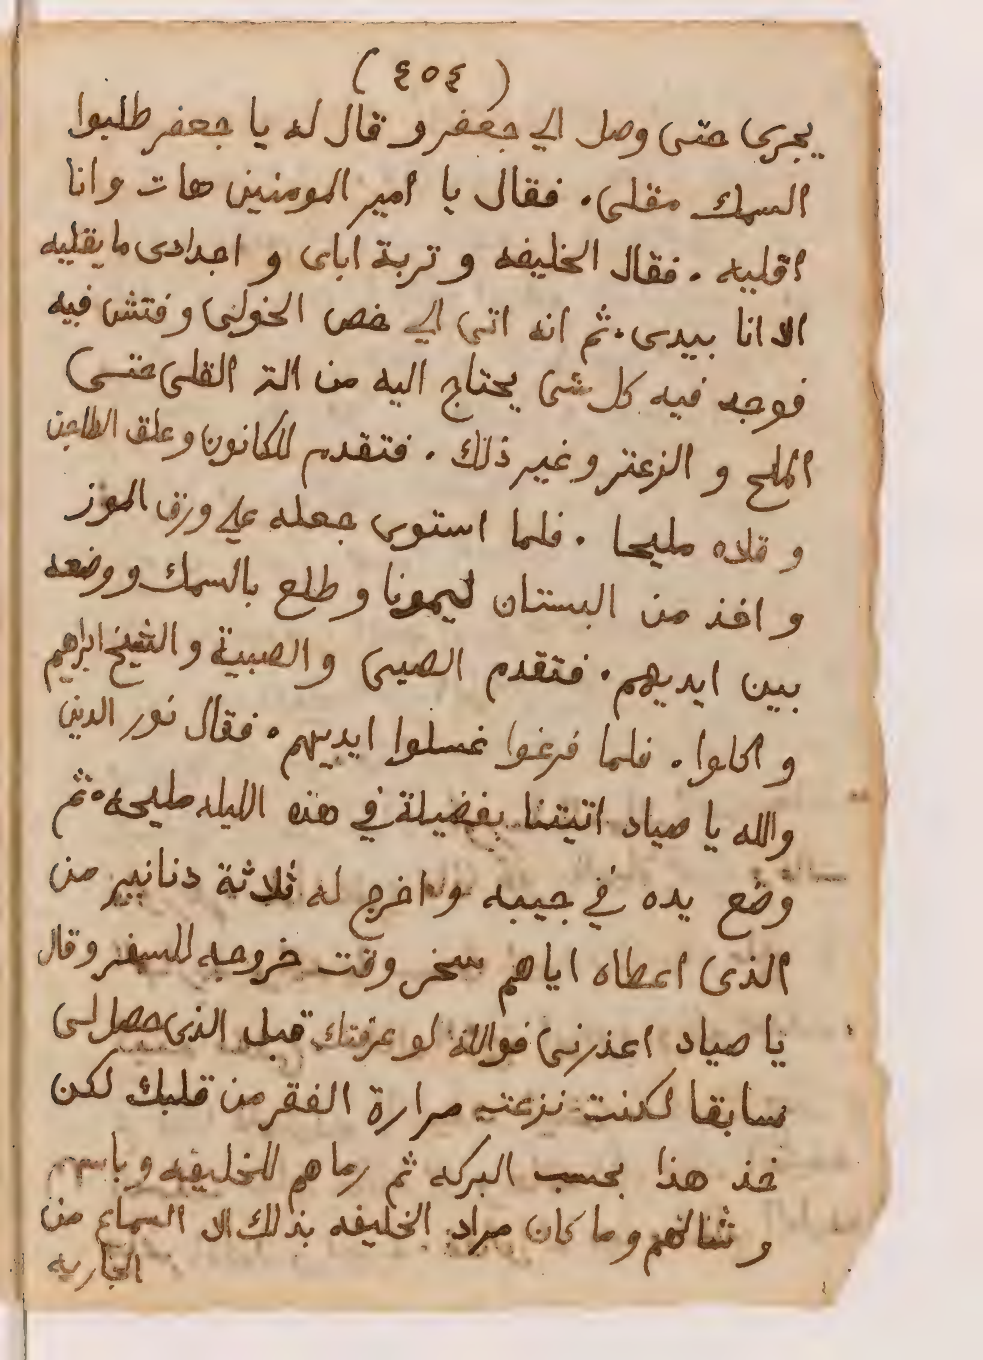 (٤٥٤)
يجرى حتى وصل الي جعفر و قال له يا جعفر طلبوا
السمك مقلى. فقال يا امير المومنين هات وانا
اقليه. فقال الخليفه و تربة اباى و اجدادى ما يقليه
الا انا بيدى. ثم انه اتى الي خص الخولى وفتش فيه
فوجد فيه كل شى يحتاج اليه من الة القلى حتى
الملح و الزعتر و غير ذلك. فتقدم للكانون وعلق الطاجن
و قلاه مليحا. فلما استوى جعله علي ورق الموز
و اخذ من البستان ليمونا و طلع بالسمك ووضعه
بين ايديهم. فتقدم الصبى والصبية والشيخ ابراهيم
و اكلوا. فلما فرغوا غسلوا ايديهم. فقال نور الدين
والله يا صياد اتيتنا بفضيلة في هذه الليله مليحه. ثم
وضع يده في جيبه و اخرج له ثلاثة دنانير من
الذى اعطاه اياهم سنجر وقت خروجه للسفر وقال
يا صياد اعذرنى فوالله لو عرفتك قبل الذى حصل لى
سابقا لكنت نزعت مرارة الفقر من قلبك لكن
خذ هذا بحسب البركه ثم رماهم للخليفه و باسهم
و شالهم وما كان مراد الخليفه بذلك الا السماع من
الجاريه